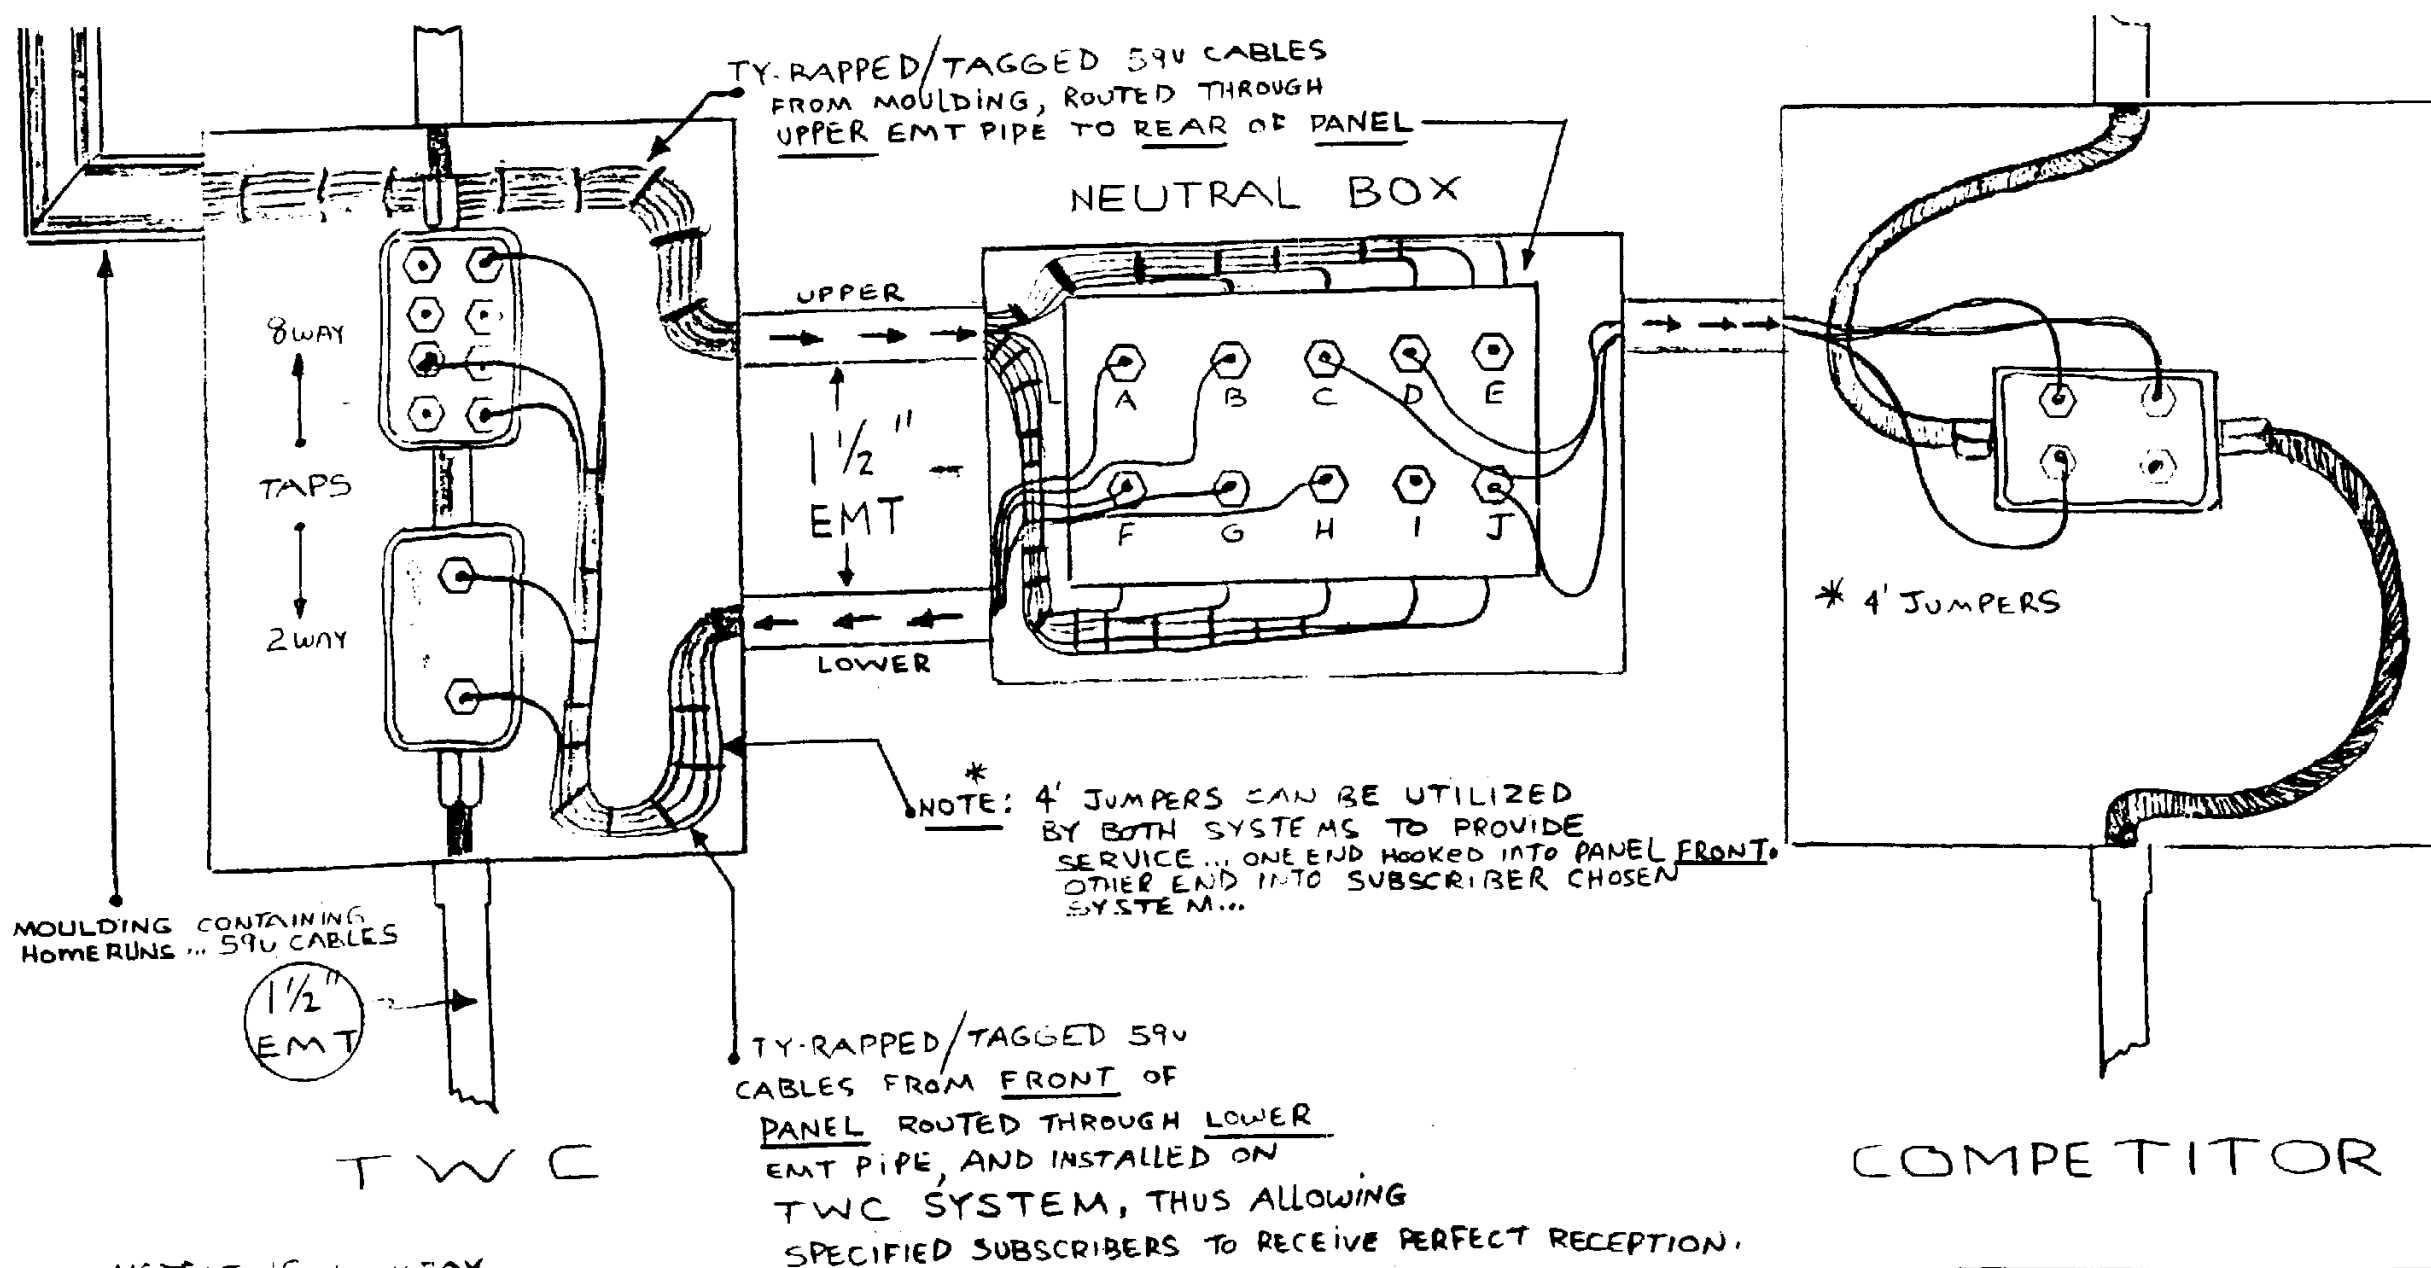 TY-RAPPED/TAGGED 59U CABLES
FROM MOULDING, ROUTED THROUGH
UPPER EMT PIPE TO REAR OF PANEL
NEUTRAL BOX
UPPER
8 WAY
TAPS
2 WAY
1 1/2"
EMT
LOWER
A B C D E
F G H I J
* 4' JUMPERS
*
NOTE: 4' JUMPERS CAN BE UTILIZED
BY BOTH SYSTEMS TO PROVIDE
SERVICE... ONE END HOOKED INTO PANEL FRONT.
OTHER END INTO SUBSCRIBER CHOSEN
SYSTEM...
MOULDING CONTAINING
HOMERUNS... 59U CABLES
1 1/2"
EMT
TY-RAPPED/TAGGED 59U
CABLES FROM FRONT OF
PANEL ROUTED THROUGH LOWER
EMT PIPE, AND INSTALLED ON
TWC SYSTEM, THUS ALLOWING
SPECIFIED SUBSCRIBERS TO RECEIVE PERFECT RECEPTION.
TWC
COMPETITOR